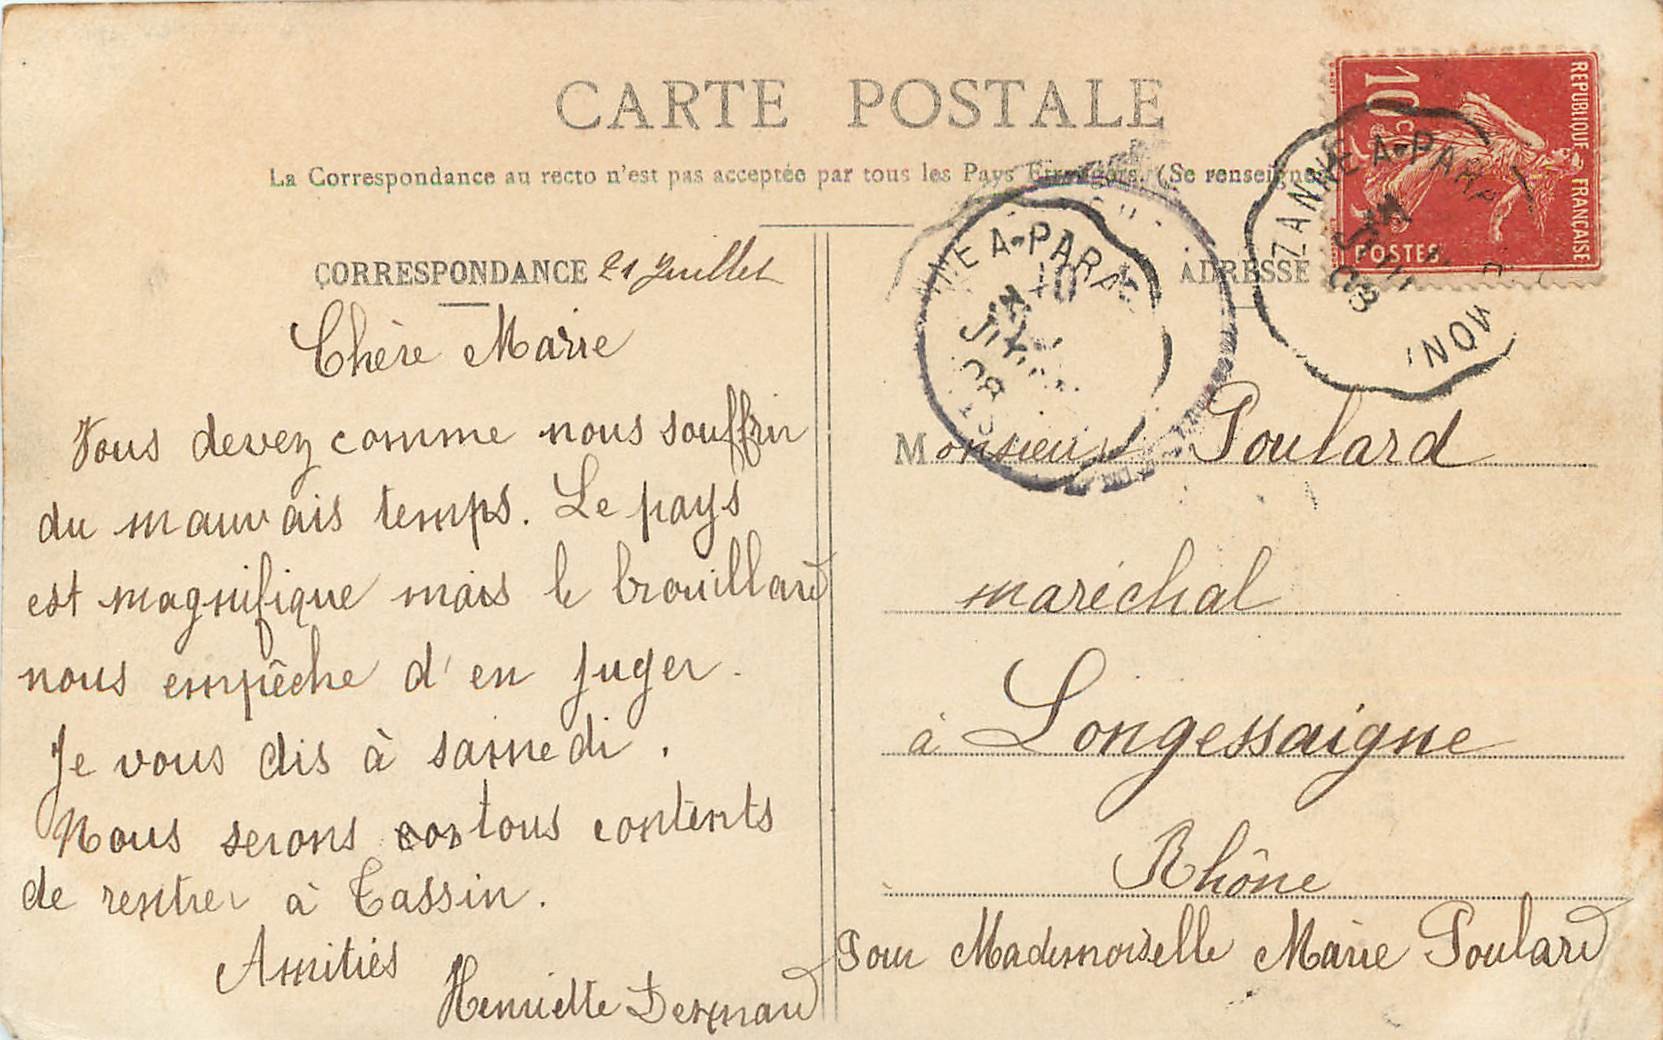 CARTE POSTALE
La Correspondance au recto n'est pas acceptée par tous les Pays Etrangers. (Se renseigner
CORRESPONDANCE 21 Juillet
Chère Marie
Vous devez comme nous souffrir
du mauvais temps. Le pays
est magnifique mais le brouillard
nous empêche d'en juger.
Je vous dis à samedi.
Nous serons tous contents
de rentrer à Tassin.
Amitiés
Henriette
ADRESSE
REPUBLIQUE FRANÇAISE
10 c
POSTES
A-PARA
JUIL
08
A-PARA
08
Monsieur Poulard
maréchal
à Longessaigne
Rhône
Pour Mademoiselle Marie Poulard